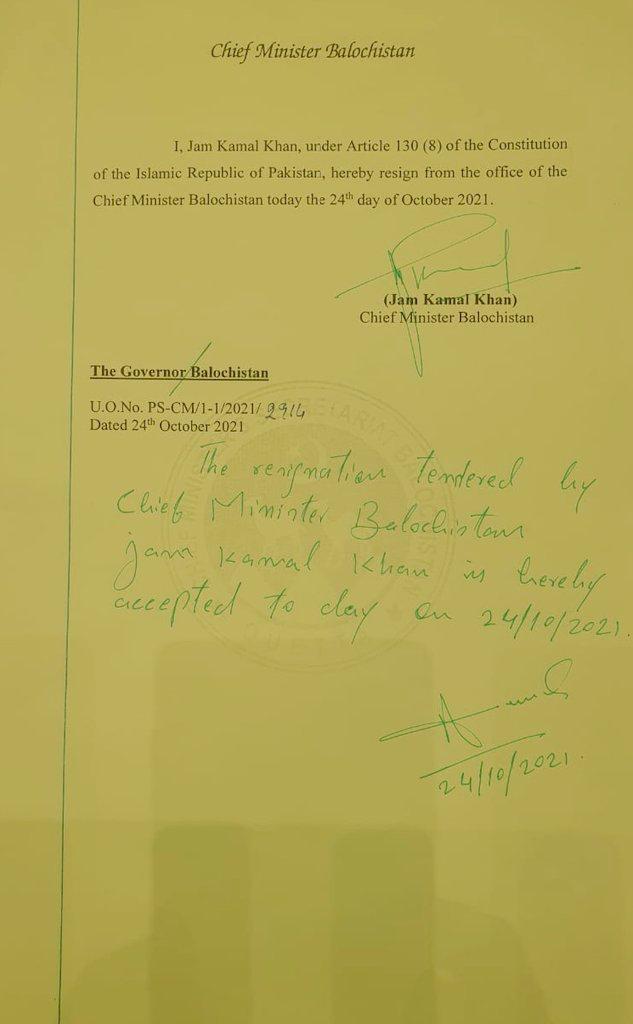 Chief Minister Balochistan
I, Jam Kamal Khan, under Article 130 (8) of the Constitution
of the Islamic Republic of Pakistan, hereby resign from the office of the
Chief Minister Balochistan today the 24th day of October 2021.
(Jam Kamal Khan)
Chief Minister Balochistan
The Governor Balochistan
U.O.No. PS-CM/1-1/2021/ 2914
Dated 24th October 2021
The resignation tendered by
Chief Minister Balochistan
Jam Kamal Khan is hereby
accepted to day on 24/10/2021.
24/10/2021.